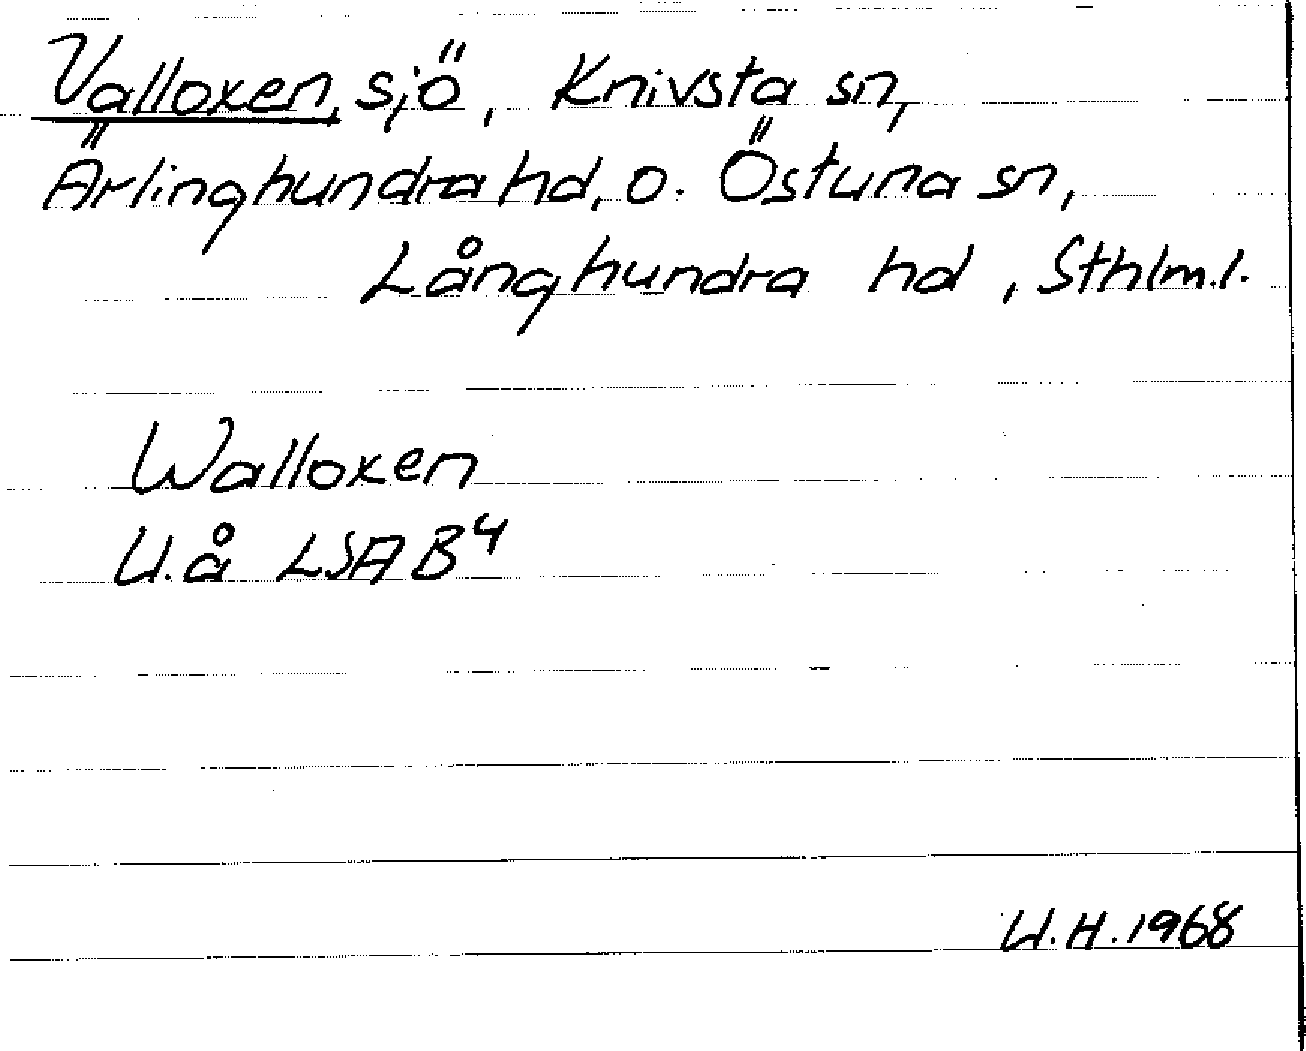 Valloxen, sjö, Knivsta sn,
Ärlinghundra hd, o. Östuna sn,
Långhundra hd, Sthlm.l.
Walloxen
U.å LSA B4
U.H. 1968